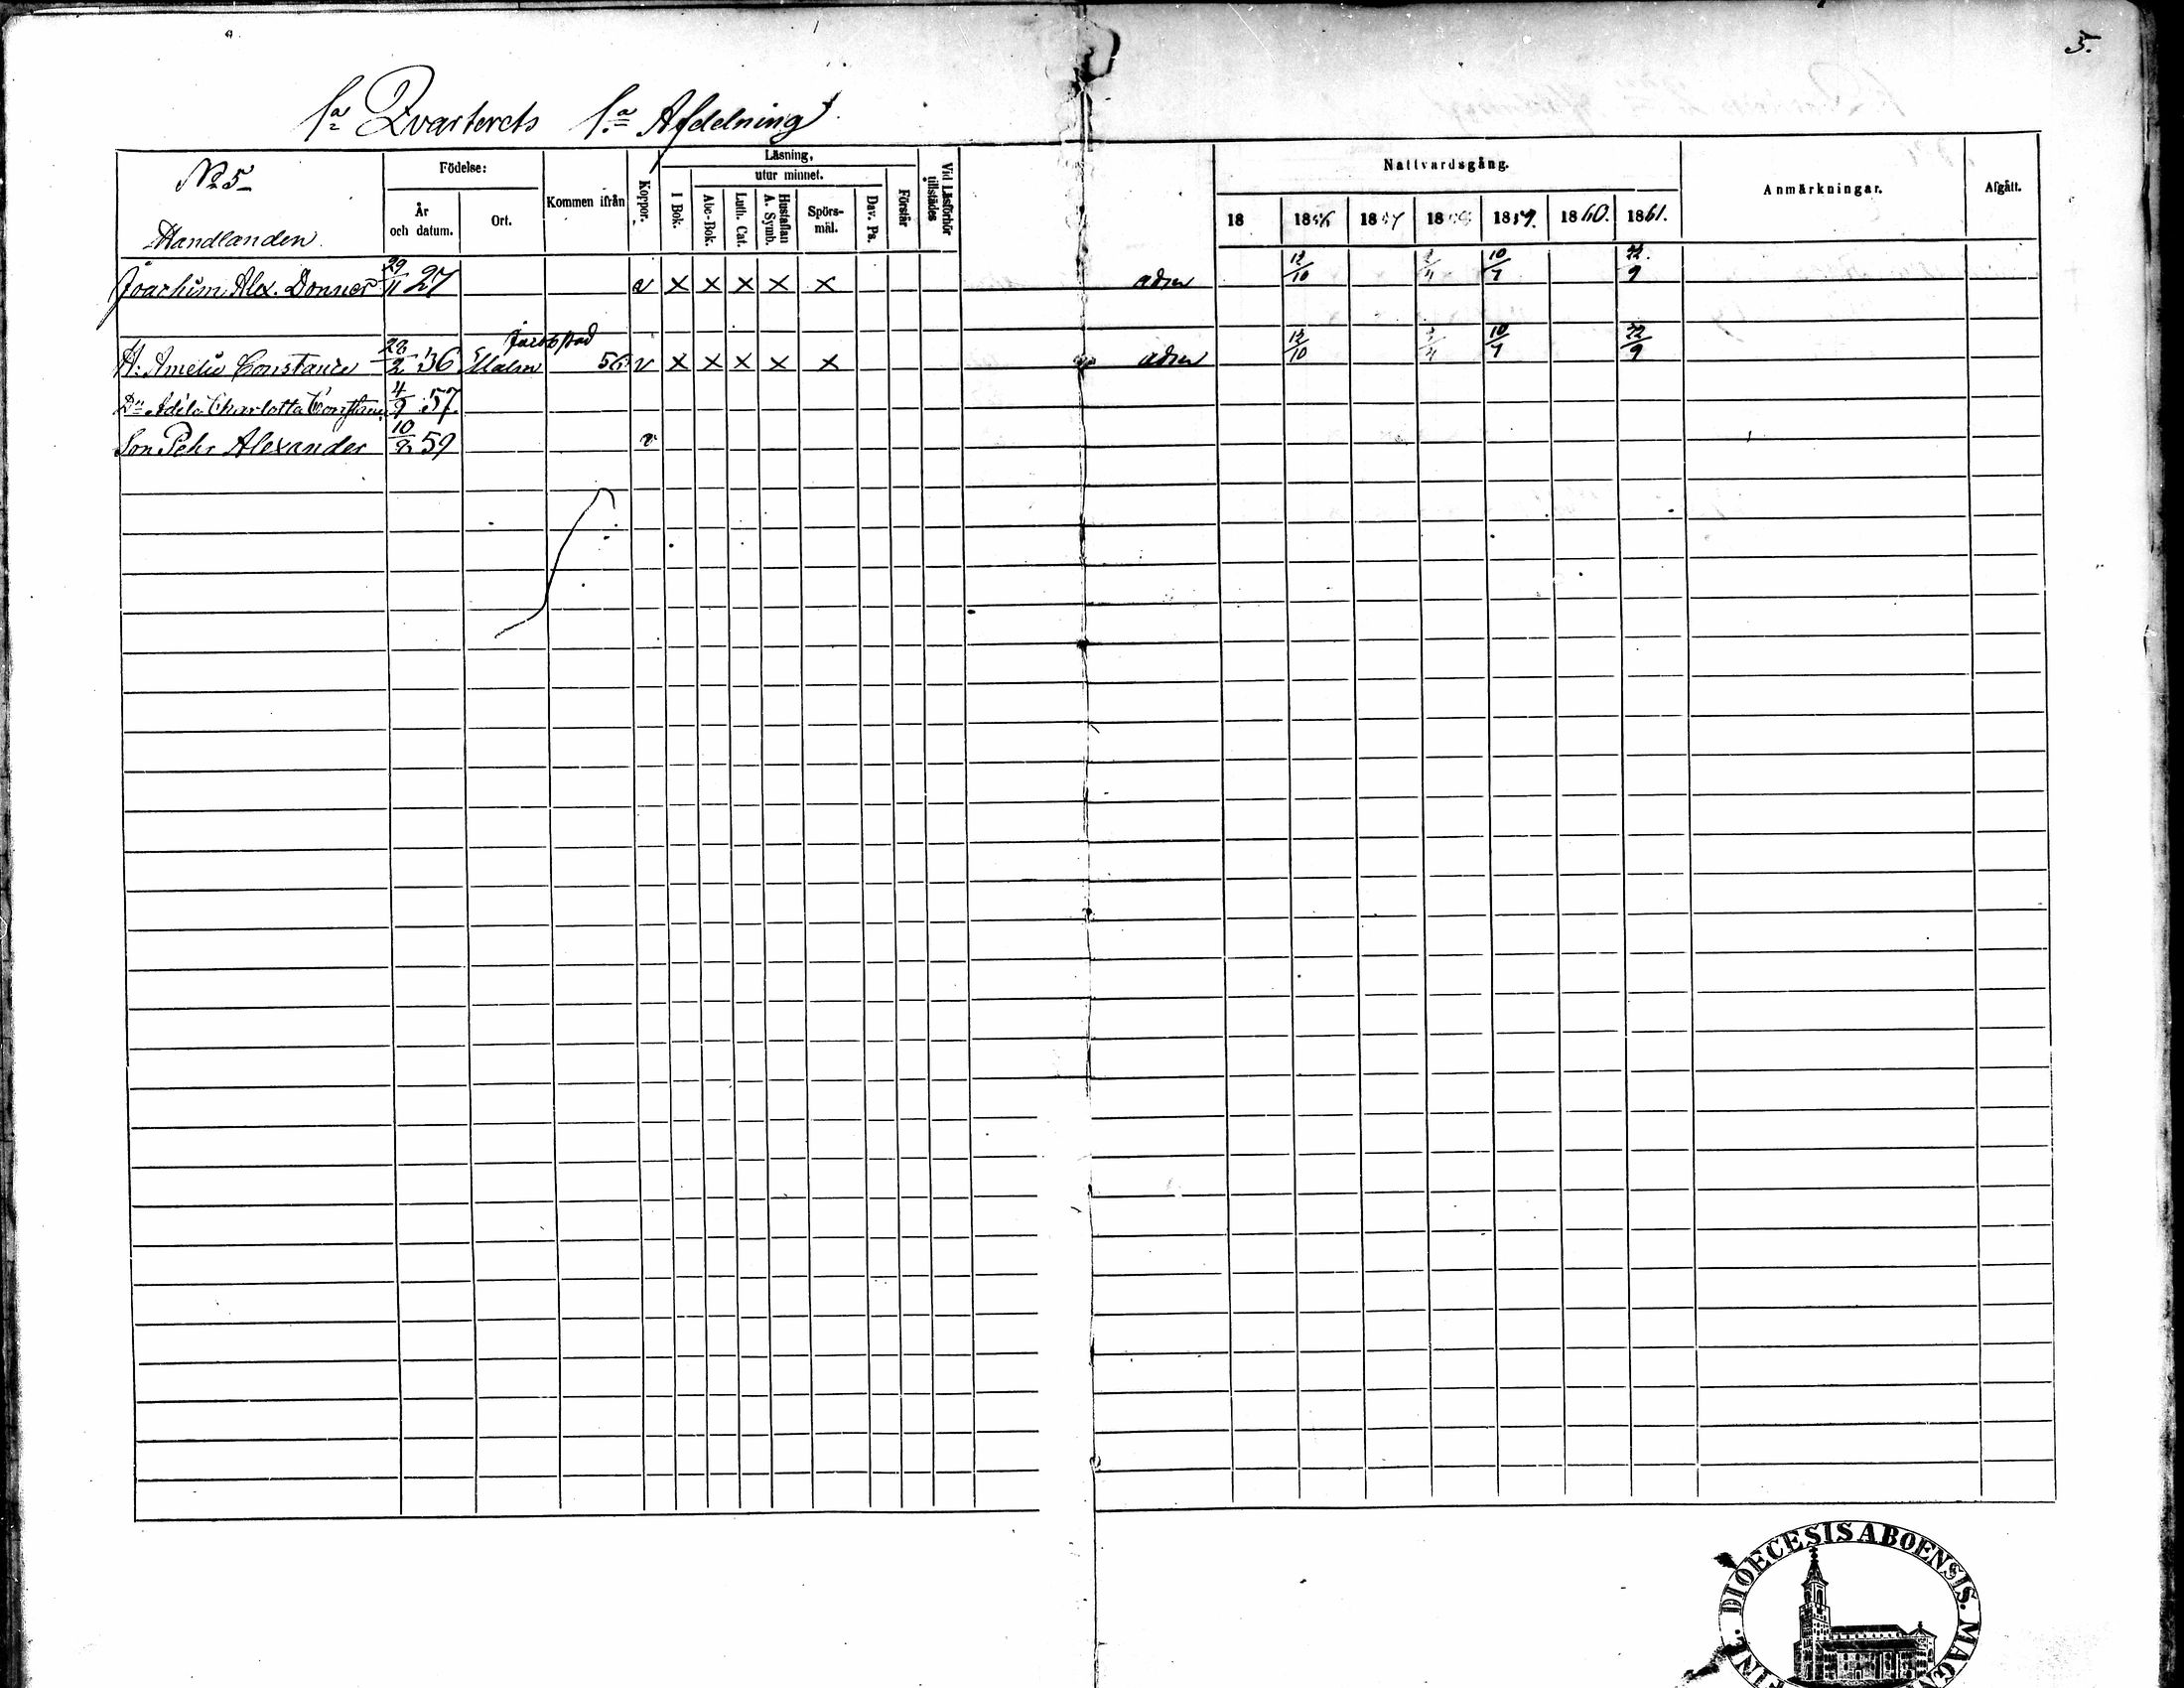 5.
1:a Qvarterets 1:a Afdelning
No 5
Födelse:
År och datum.
Ort.
Kommen ifrån
Koppor.
Läsning,
I Bok.
utur minnet.
Abc-Bok.
Luth. Cat.
Hustaflan A. Symb.
Spörs-mål.
Dav. Ps.
Förstår
Vid Läsförhör tillstädes
Nattvardsgång.
18 1856 1857 1858 1859. 1860. 1861.
Anmärkningar.
Afgått.
Handlanden
Joachim Alex. Donner 29/11 27 v × × × × × adm 12/10 10/7 22/9
Jacobstad
H: Amelie Constance 28/2 36 Malm 56 v × × × × × adm 12/10 10/7 22/9
Dr Adéle Charlotta Constance 4/9 57.
Son Pehr Alexander 10/2 59 v
DIOECESIS ABOENSIS. MAGN
FINL.